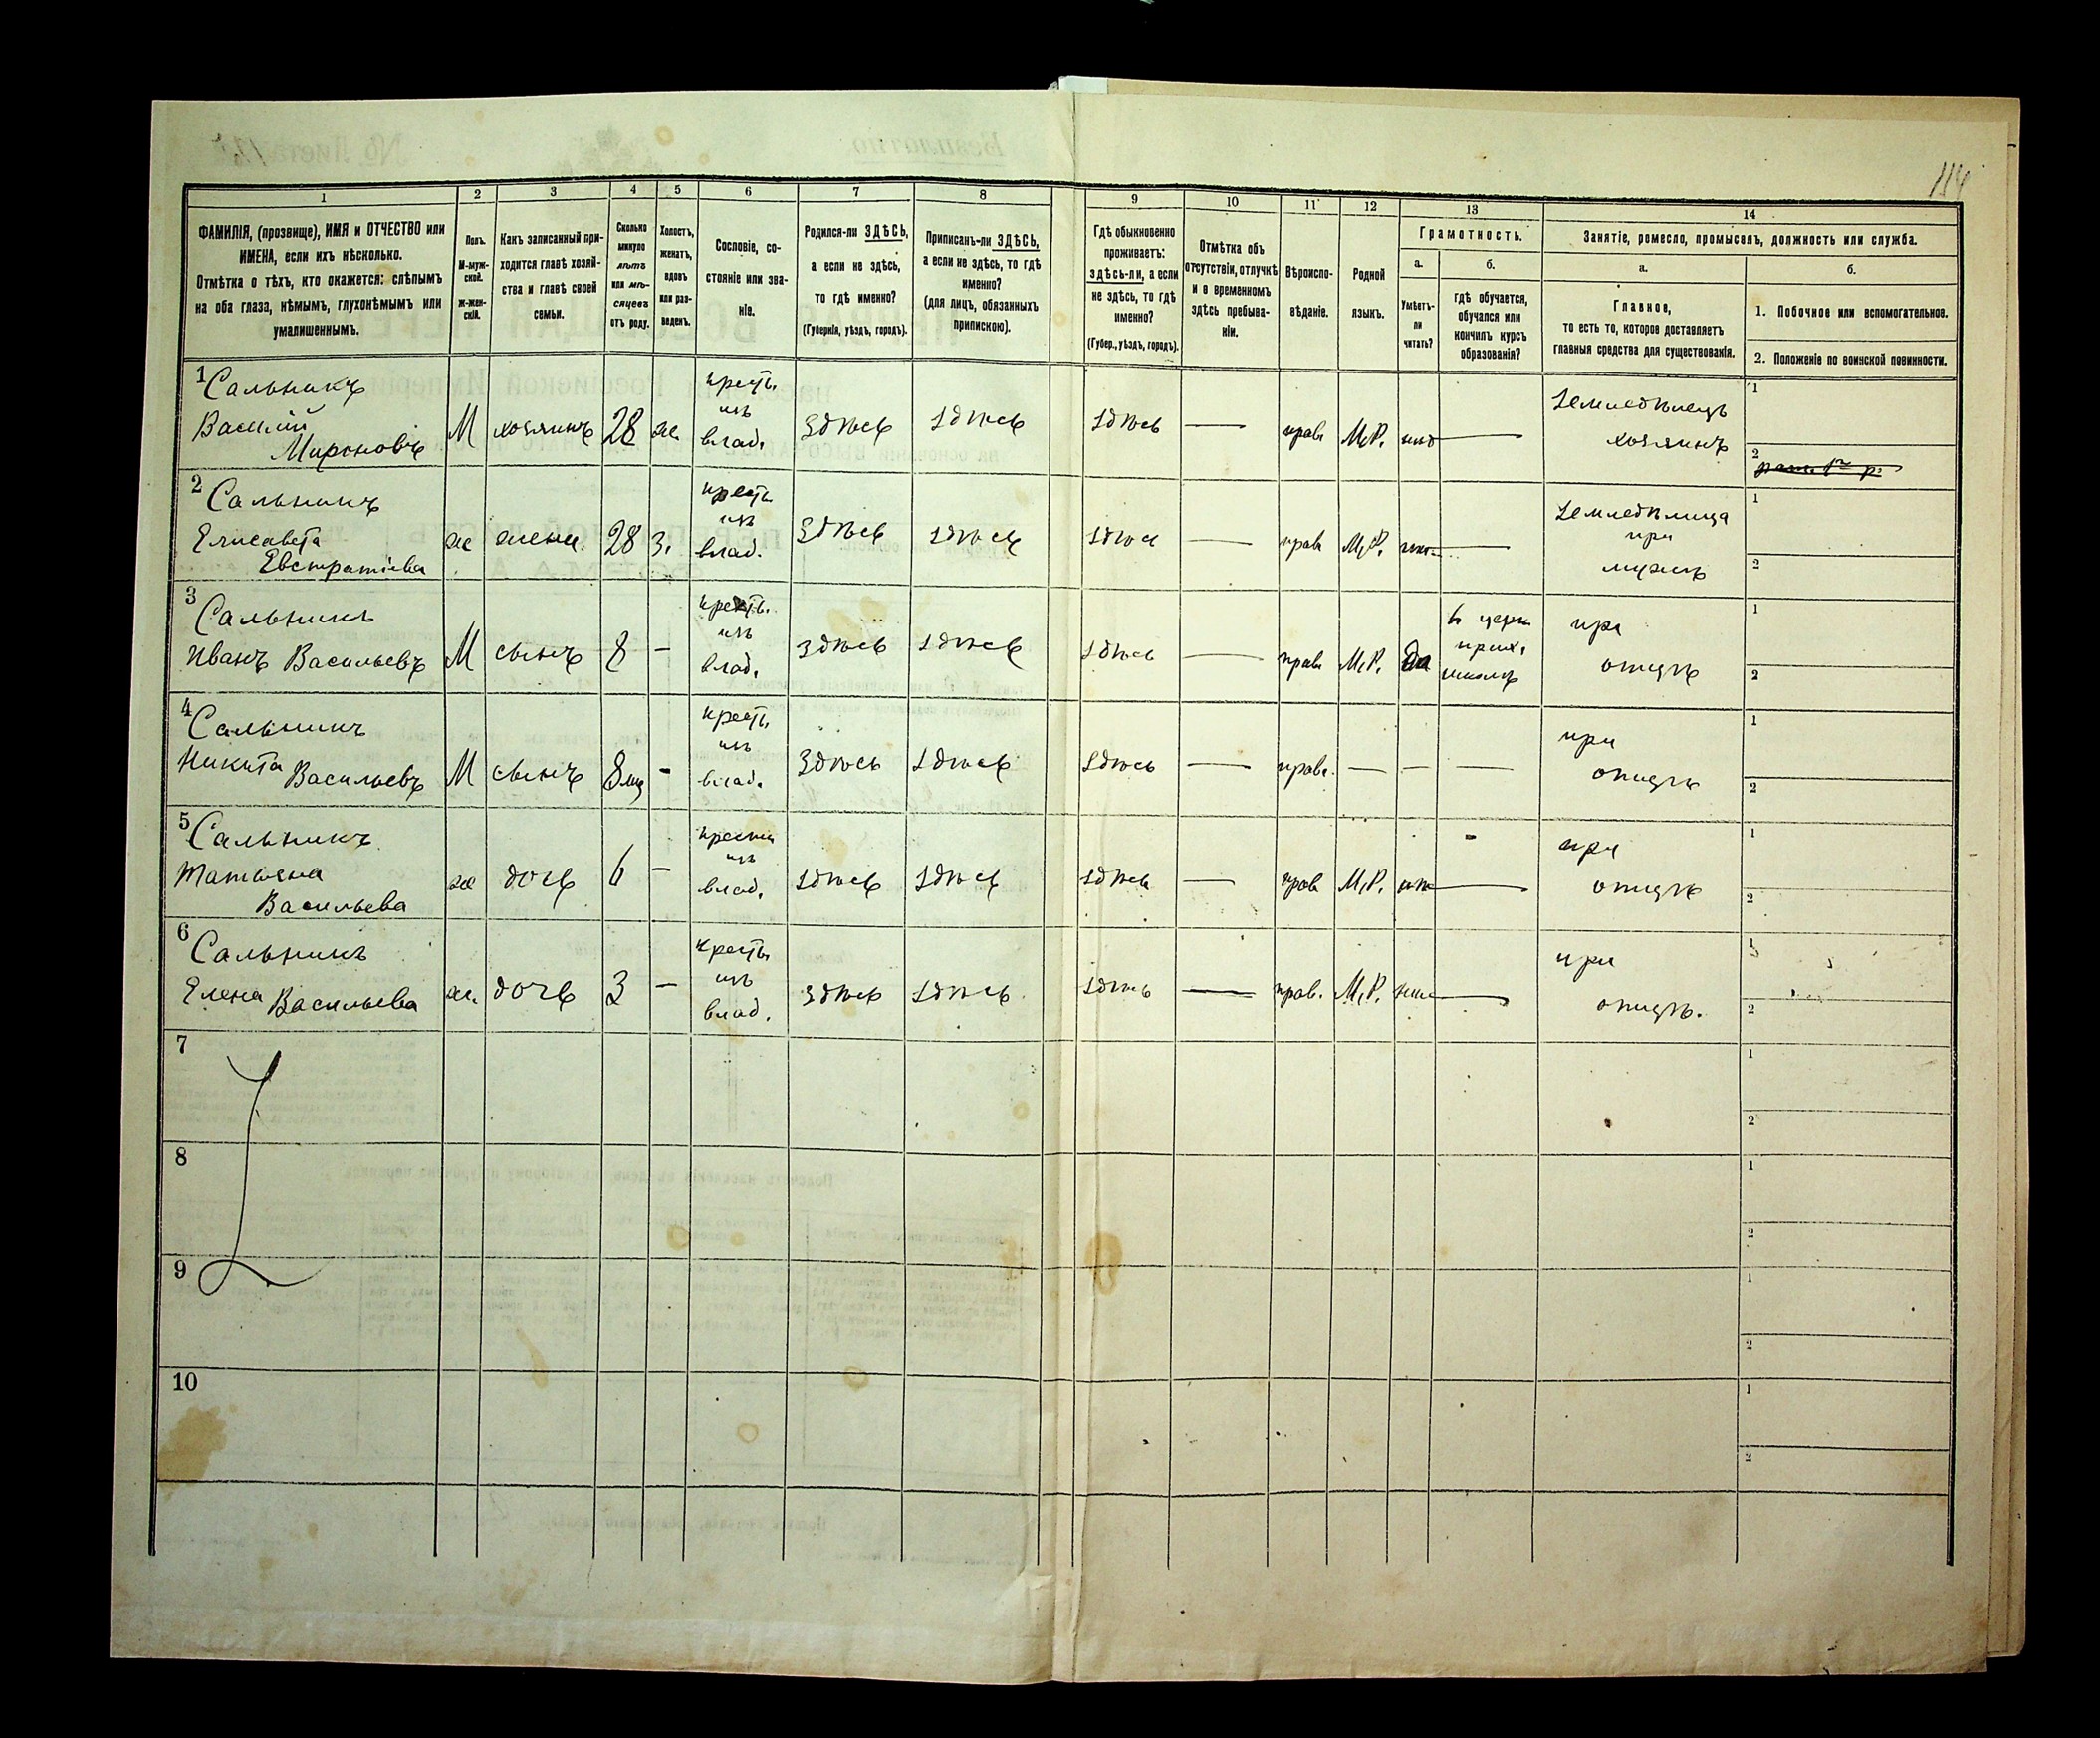 114
1
2
3
4
5
6
7
8
9
10
11
12
13
14
ФАМИЛІЯ, (прозвище), ИМЯ и ОТЧЕСТВО или
ИМЕНА, если ихъ нѣсколько.
Отмѣтка о тѣхъ, кто окажется: слѣпымъ
на оба глаза, нѣмымъ, глухонѣмымъ или
умалишеннымъ.
Полъ.
М-муж-
ской.
ж-жен-
скій.
Какъ записанный при-
ходится главѣ хозяй-
ства и главѣ своей
семьи.
Сколько
минуло
лѣтъ
или мѣ-
сяцевъ
отъ роду.
Холостъ,
женатъ,
вдовъ
или раз-
веденъ.
Сословіе, со-
стояніе или зва-
ніе.
Родился-ли ЗДѢСЬ,
а если не здѣсь,
то гдѣ именно?
(Губернія, уѣздъ, городъ).
Приписанъ-ли ЗДѢСЬ,
а если не здѣсь, то гдѣ
именно?
(для лицъ, обязанныхъ
припискою).
Гдѣ обыкновенно
проживаетъ:
здѣсь-ли, а если
не здѣсь, то гдѣ
именно?
(Губер., уѣздъ, городъ).
Отмѣтка объ
отсутствіи, отлучкѣ
и о временномъ
здѣсь пребыва-
ніи.
Вѣроиспо-
вѣданіе.
Родной
языкъ.
Грамотность.
а.
Умѣетъ-
ли
читать?
б.
гдѣ обучается,
обучался или
кончилъ курсъ
образованія?
Занятіе, ремесло, промыселъ, должность или служба.
а.
Главное,
то есть то, которое доставляетъ
главныя средства для существованія.
б.
1. Побочное или вспомогательное.
2. Положеніе по воинской повинности.
1 Сальникъ
Василій
Мироновъ
М хозяинъ 28 ж.
крест.
изъ
влад.
здѣсь здѣсь здѣсь — прав. М.Р. —
Земледѣлецъ
хозяинъ
1
2
2 Сальникъ
Елисавета
Евстратіева
ж жена 28 З.
крест.
изъ
влад.
здѣсь здѣсь здѣсь — прав М.Р. —
Земледѣлица
при
мужѣ
1
2
3 Сальникъ
Иванъ Васильевъ
М сынъ 8 —
крест.
изъ
влад.
здѣсь здѣсь здѣсь — прав М.Р. да
в церк
прих.
школѣ
при
отцѣ
1
2
4 Сальникъ
Никита Васильевъ
М сынъ 8 мц -
крест.
изъ
влад.
здѣсь здѣсь здѣсь — прав. — — —
при
отцѣ
1
2
5 Сальникъ
Татьяна
Васильева
ж дочь 6 —
крестн
изъ
влад.
здѣсь здѣсь здѣсь — прав М.Р. —
при
отцѣ
1
2
6 Сальникъ
Елена Васильева
ж. дочь 3 —
крест.
изъ
влад.
здѣсь здѣсь здѣсь — прав. М.Р. —
при
отцѣ.
1
2
7
1
2
8
1
2
9
1
2
10
1
2